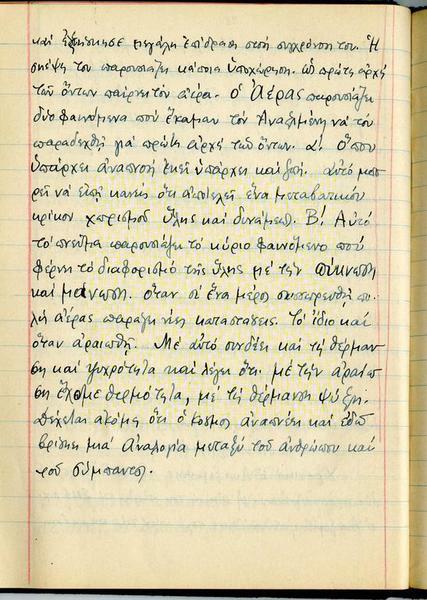 καὶ ἐξήσκησε μεγάλη ἐπίδραση στοὺς συγχρόνους του. Ἡ
σκέψη του παρουσιάζει κάποια ὑποχώρηση. ὡς πρώτη ἀρχή
τῶν ὄντων παίρνει τὸν ἀέρα. ὁ Ἀέρας παρουσιάζει
δύο φαινόμενα ποὺ ἔκαμαν τὸν Ἀναξιμένη νὰ τὸν
παραδεχθῇ γιὰ πρώτη ἀρχὴ τῶν ὄντων. α. Ὅπου
ὑπάρχει ἀναπνοὴ ἐκεῖ ὑπάρχει καὶ ζωή. αὐτὸ μπο
ρεῖ νὰ εἰπῇ κανεὶς ὅτι ἀποτελεῖ ἕνα μεταβατικὸν
κρίκον χωρισμοῦ ὕλης καὶ δυνάμεως. Β! Αὐτὸ
τὸ πνεῦμα παρουσιάζει τὸ κύριο φαινόμενο ποὺ
φέρνει τὸ διαφορισμὸ τῆς ὕλης μὲ τὴν πύκνωση
καὶ μάνωση. ὅταν σὲ ἕνα μέρος συσσωρευθῇ πο
λὺς ἀέρας παράγει νέες καταστάσεις. Τὸ ἴδιο καὶ
ὅταν ἀραιωθῇ. Μὲ αὐτὸ συνδέει καὶ τὴ θέρμαν
ση καὶ ψυχρότητα καὶ λέγει ὅτι μὲ τὴν ἀραίω
ση ἔχομε θερμότητα, μὲ τὴ θέρμανση ψύξη.
Δέχεται ἀκόμη ὅτι ὁ κόσμος ἀναπνέει καὶ ἐδῶ
βρίσκει μιὰ ἀναλογία μεταξὺ τοῦ ἀνθρώπου καὶ
τοῦ σύμπαντος.